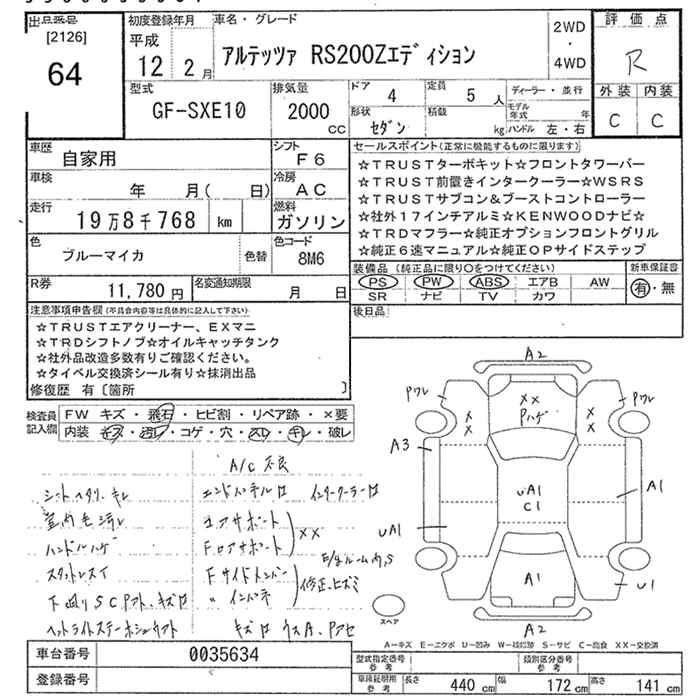 出品番号
[2126]
64
初度登録年月
平成
12 2月
車名・グレード
アルテッツァ RS200Zエディション
2WD
・
4WD
評価点
R
外装 内装
C C
型式
GF-SXE10
排気量
2000
cc
ドア
4
定員
5 人
形状
セダン
積載
kg
ディーラー・並行
モデル年式 年
ハンドル 左・右
車歴
自家用
シフト
F6
車検
年 月( 日)
冷房
AC
走行
19万8千768 km
燃料
ガソリン
色
ブルーマイカ
色替
色コード
8M6
R券
11,780 円
名変通知期限
月 日
セールスポイント(正常に機能するものに限ります)
☆TRUSTターボキット☆フロントタワーバー
☆TRUST前置きインタークーラー☆WSRS
☆TRUSTサブコン&ブーストコントローラー
☆社外17インチアルミ☆KENWOODナビ☆
☆TRDマフラー☆純正オプションフロントグリル
☆純正6速マニュアル☆純正OPサイドステップ
装備品(純正品に限り〇をつけてください)
新車保証書
PS PW ABS エアB AW
SR ナビ TV カワ
有・無
後日品
注意事項申告欄(不具合内容は具体的に記入して下さい)
☆TRUSTエアクリーナー、EXマニ
☆TRDシフトノブ☆オイルキャッチタンク
☆社外品改造多数有りご確認ください。
☆タイベル交換済シール有り☆抹消出品
修復歴 有〔箇所 〕
検査員記入欄
FW キズ・飛石・ヒビ割・リペア跡・×要
内装 キズ・汚レ・コゲ・穴・スレ・キレ・破レ
A/C 不良
シートヘタリ、キレ
エンドパネル ロ インタークーラー ロ
室内毛汚レ
コアサポート
ハンドルハゲ
F.ロアサポート
××
スタットレスイ
Fサイドメンバー
〃 インパネ
修正、ヒズミ
ヘッドライトステー
A2
Pワレ
××
Pハゲ
××
Pワレ
A3
uA1
C1
A1
uA1
A1
u1
A2
スペア
A=キズ E=エクボ U=凹み W=補修跡 S=サビ C=腐食 XX=交換済
車台番号
0035634
登録番号
型式指定番号
参考
類別区分番号
参考
車庫証明用
参考
長さ 440 cm
幅 172 cm
高さ 141 cm